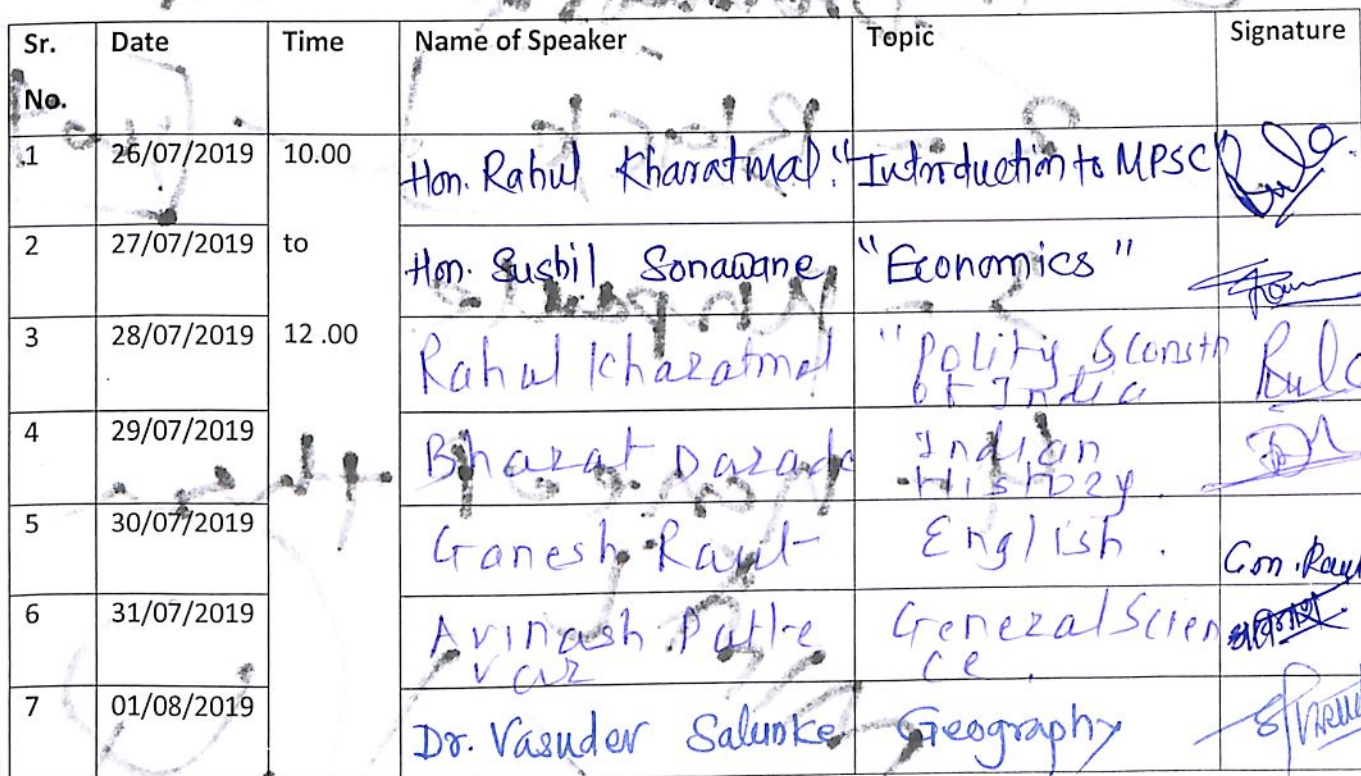 Sr. No. Date Time Name of Speaker Topic Signature
1 26/07/2019 10.00 Hon. Rahul Kharatmal. "Introduction to MPSC
2 27/07/2019 to Hon. Sushil Sonawane, "Economics"
3 28/07/2019 12 .00 Rahul Kharatmal "Polity & Constn
of India
4 29/07/2019 Bharat Darade Indian
History.
5 30/07/2019 Ganesh Raut English . G.m. Raut
6 31/07/2019 Avinash Patle General Scien
var ce.
7 01/08/2019 Dr. Vasudev Salunke Geography